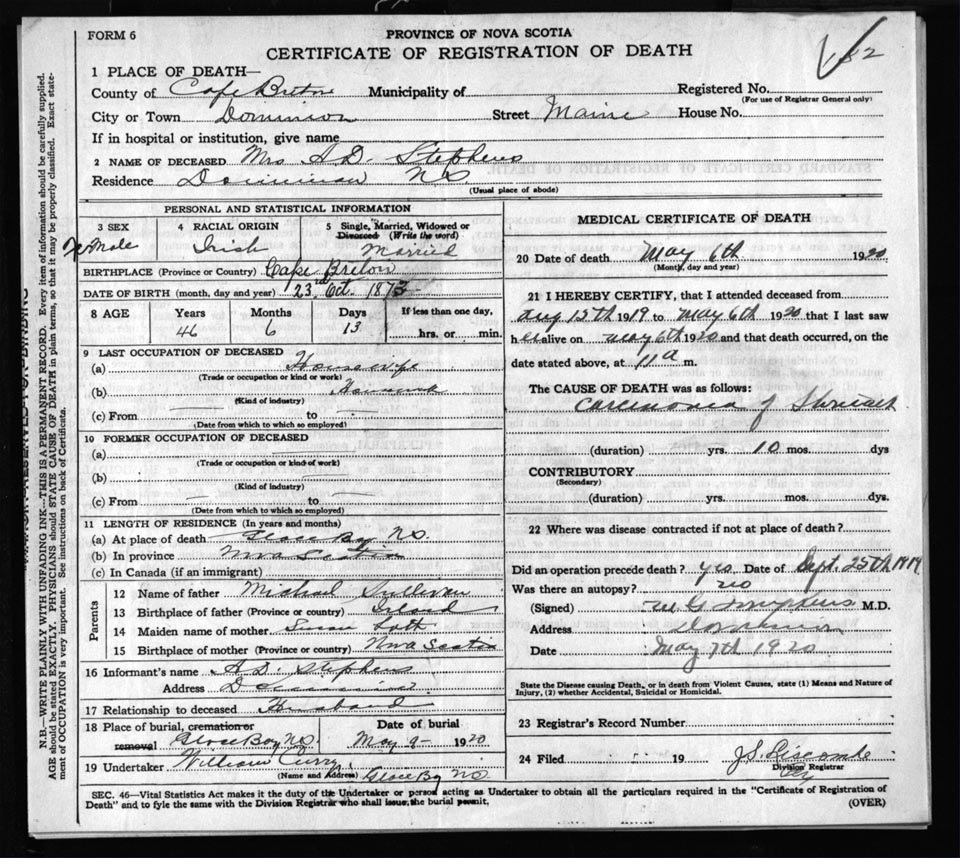 FORM 6
PROVINCE OF NOVA SCOTIA
CERTIFICATE OF REGISTRATION OF DEATH
1 PLACE OF DEATH—
County of Cape Breton Municipality of Registered No.
(For use of Registrar General only)
City or Town Dominion Street Maine House No.
If in hospital or institution, give name
2 NAME OF DECEASED Mrs A.D. Stephens
Residence Dominion N.S.
(Usual place of abode)
PERSONAL AND STATISTICAL INFORMATION
3 SEX 4 RACIAL ORIGIN 5 Single, Married, Widowed or Divorced (Write the word)
Female Irish Married
BIRTHPLACE (Province or Country) Cape Breton
DATE OF BIRTH (month, day and year) 23rd Oct. 1873
8 AGE Years Months Days If less than one day,
46 6 13 hrs. or min.
9 LAST OCCUPATION OF DECEASED
(a) Housewife
(Trade or occupation or kind or work)
(b) Housework
(Kind of industry)
(c) From — to —
(Date from which to which so employed)
10 FORMER OCCUPATION OF DECEASED
(a)
(Trade or occupation or kind of work)
(b)
(Kind of industry)
(c) From — to —
(Date from which to which so employed)
11 LENGTH OF RESIDENCE (In years and months)
(a) At place of death Glace Bay N.S.
(b) In province Nova Scotia
(c) In Canada (if an immigrant)
Parents
12 Name of father Michael Sullivan
13 Birthplace of father (Province or country) Ireland
14 Maiden name of mother Susan
15 Birthplace of mother (Province or country) Nova Scotia
16 Informant's name A.D. Stephens
Address Dominion
17 Relationship to deceased Husband
18 Place of burial, cremation or removal Date of burial
Glace Bay N.S. May 9 1920
19 Undertaker William Curry
(Name and Address) Glace Bay N.S.
MEDICAL CERTIFICATE OF DEATH
20 Date of death May 6th 1920
(Month, day and year)
21 I HEREBY CERTIFY, that I attended deceased from
Aug 12th 1919 to May 6th 1920 that I last saw
her alive on May 6th 1920 and that death occurred, on the
date stated above, at 11 a m.
The CAUSE OF DEATH was as follows:
Carcinoma of Stomach
(duration) yrs. 10 mos. dys
CONTRIBUTORY
(Secondary)
(duration) yrs. mos. dys.
22 Where was disease contracted if not at place of death?
Did an operation precede death? yes Date of Sept. 25th 1919
Was there an autopsy? no
(Signed) M.D.
Address Dominion
Date May 7th 1920
State the Disease causing Death, or in death from Violent Causes, state (1) Means and Nature of
Injury, (2) whether Accidental, Suicidal or Homicidal.
23 Registrar's Record Number
24 Filed 19
Division Registrar
SEC. 46—Vital Statistics Act makes it the duty of the Undertaker or person acting as Undertaker to obtain all the particulars required in the "Certificate of Registration of
Death" and to fyle the same with the Division Registrar who shall issue the burial permit,
(OVER)
N.B.—WRITE PLAINLY WITH UNFADING INK—THIS IS A PERMANENT RECORD. Every item of information should be carefully supplied.
AGE should be stated EXACTLY. PHYSICIANS should STATE CAUSE OF DEATH in plain terms, so that it may be properly classified. Exact state-
ment of OCCUPATION is very important. See instructions on back of Certificate.